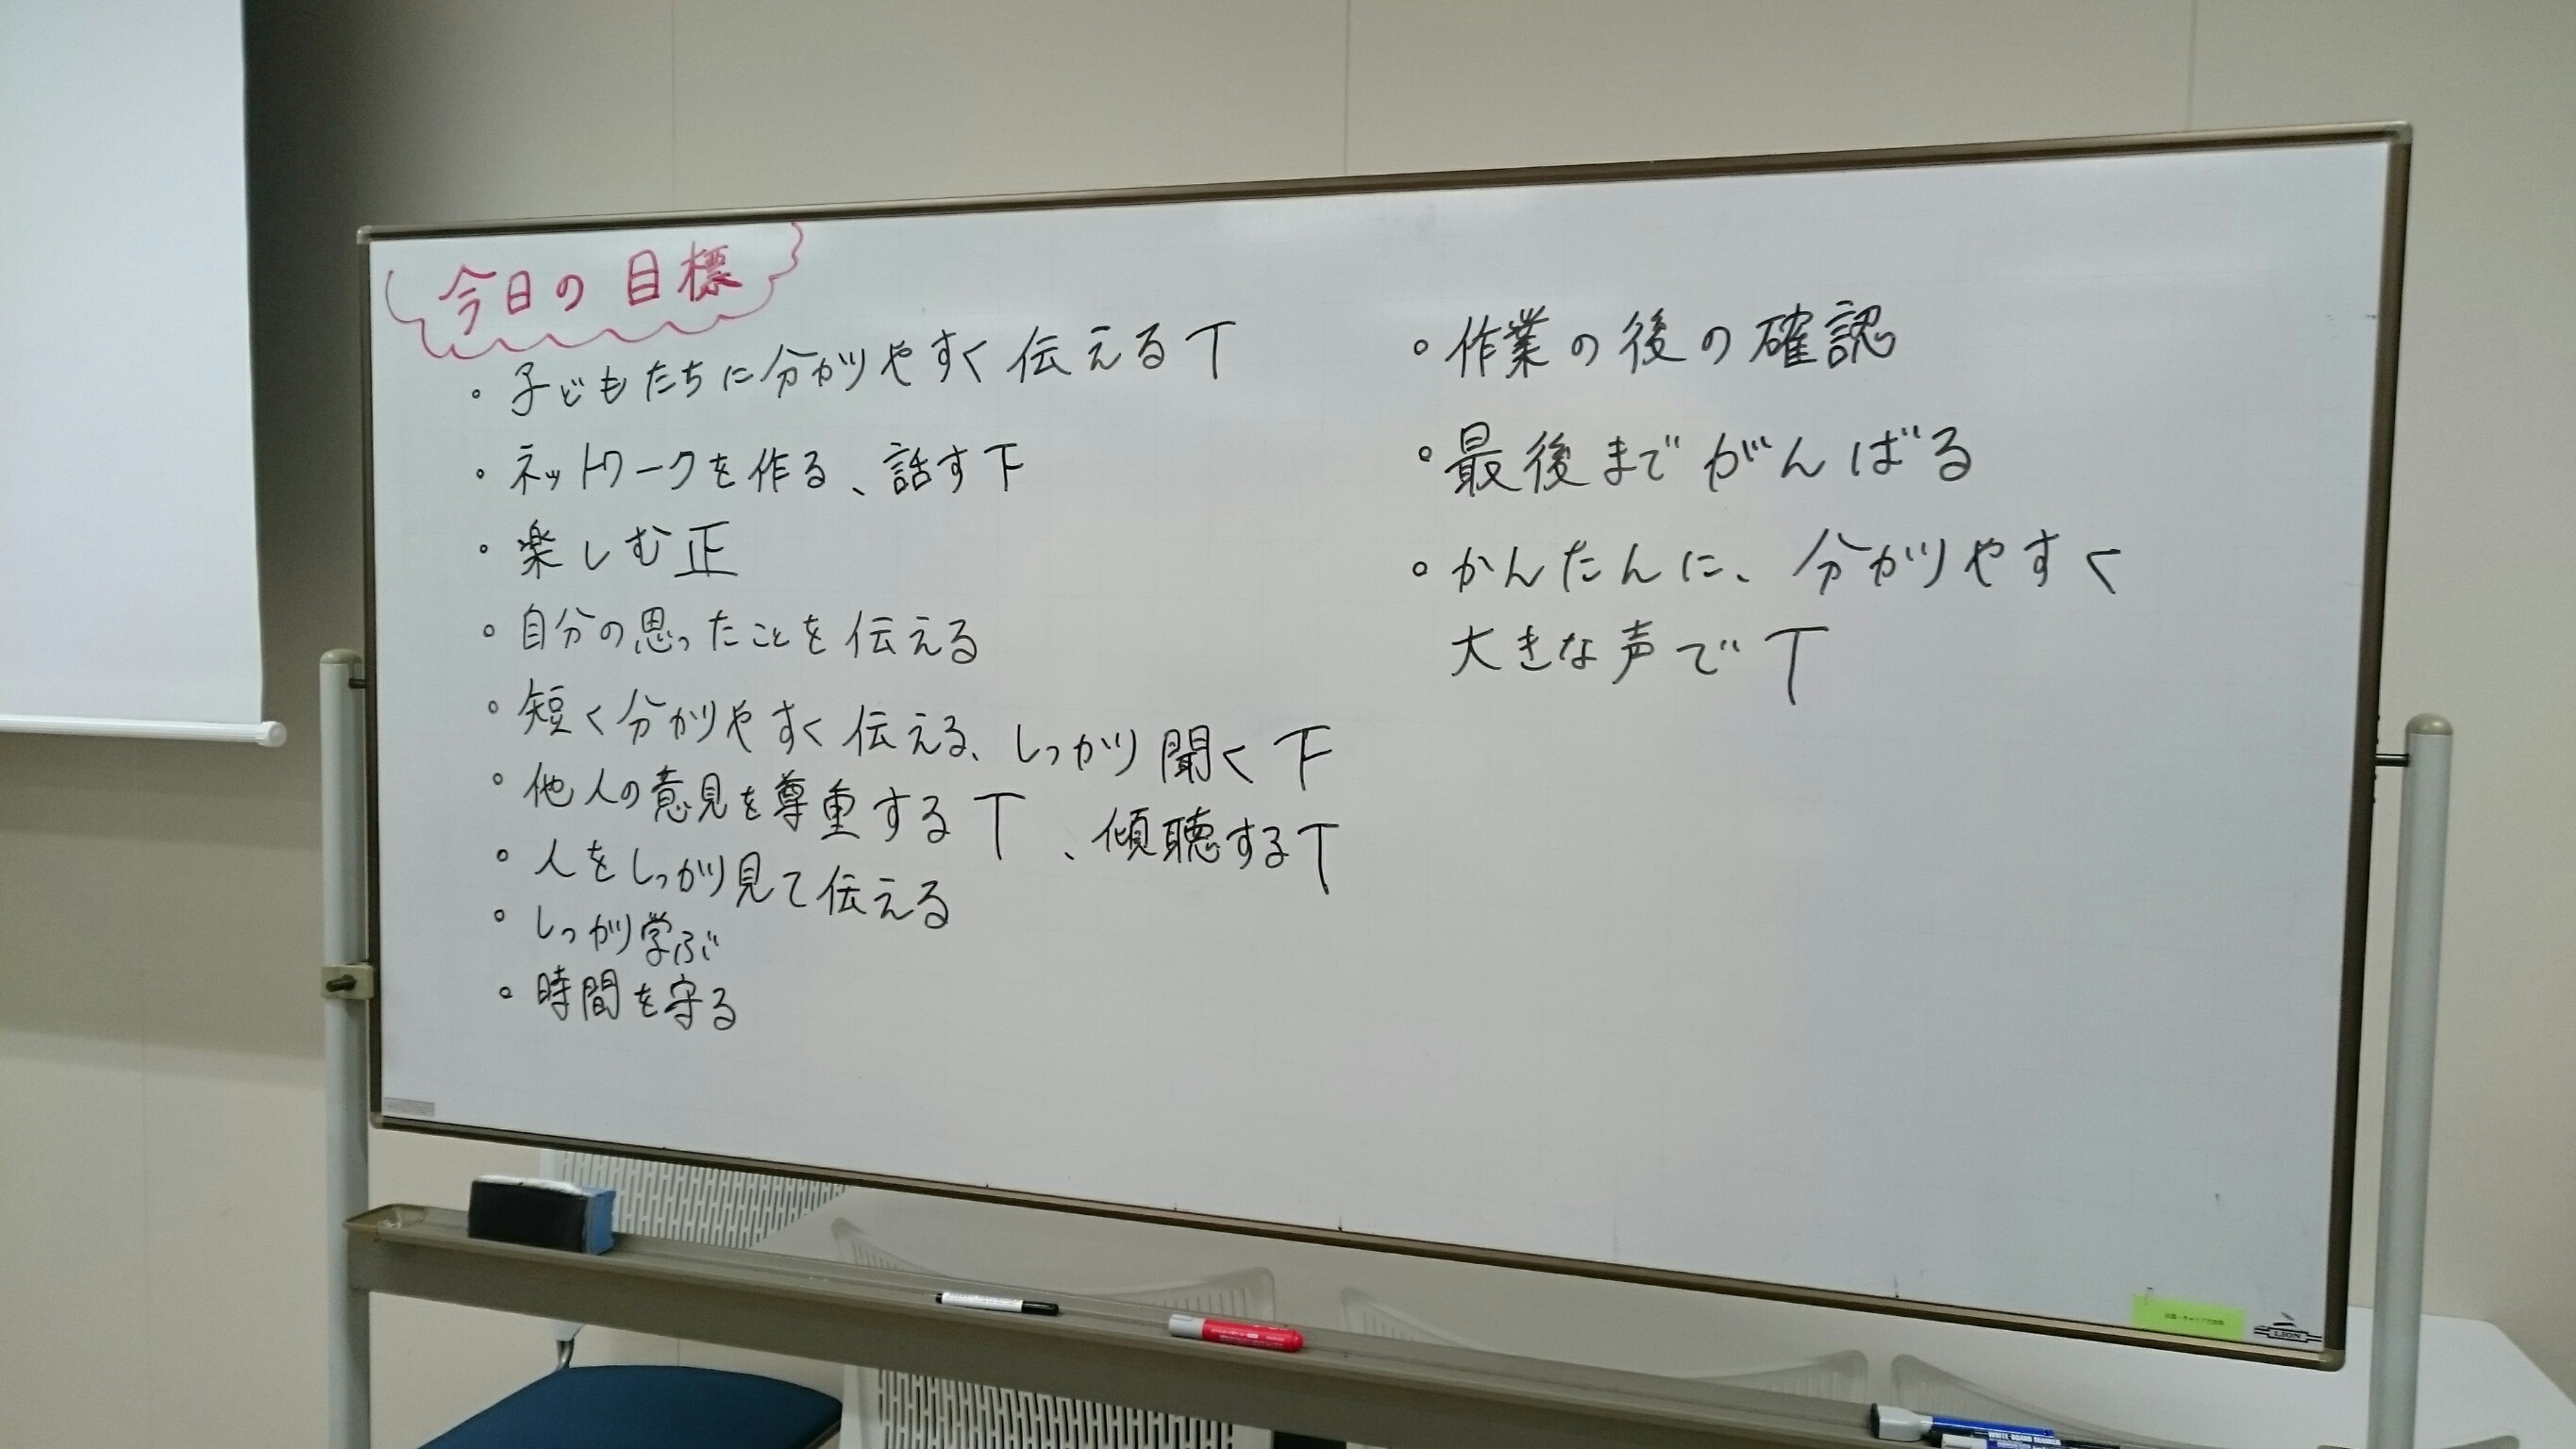 今日の目標
。子どもたちに分かりやすく伝える丅
。ネットワークを作る、話す下
。楽しむ正
。自分の思ったことを伝える
。短く分かりやすく伝える、しっかり聞く下
。他人の意見を尊重する丅、傾聴する丅
。人をしっかり見て伝える
。しっかり学ぶ
。時間を守る
。作業の後の確認
。最後までがんばる
。かんたんに、分かりやすく
大きな声で丅
LION
WHITE BOARD MARKER